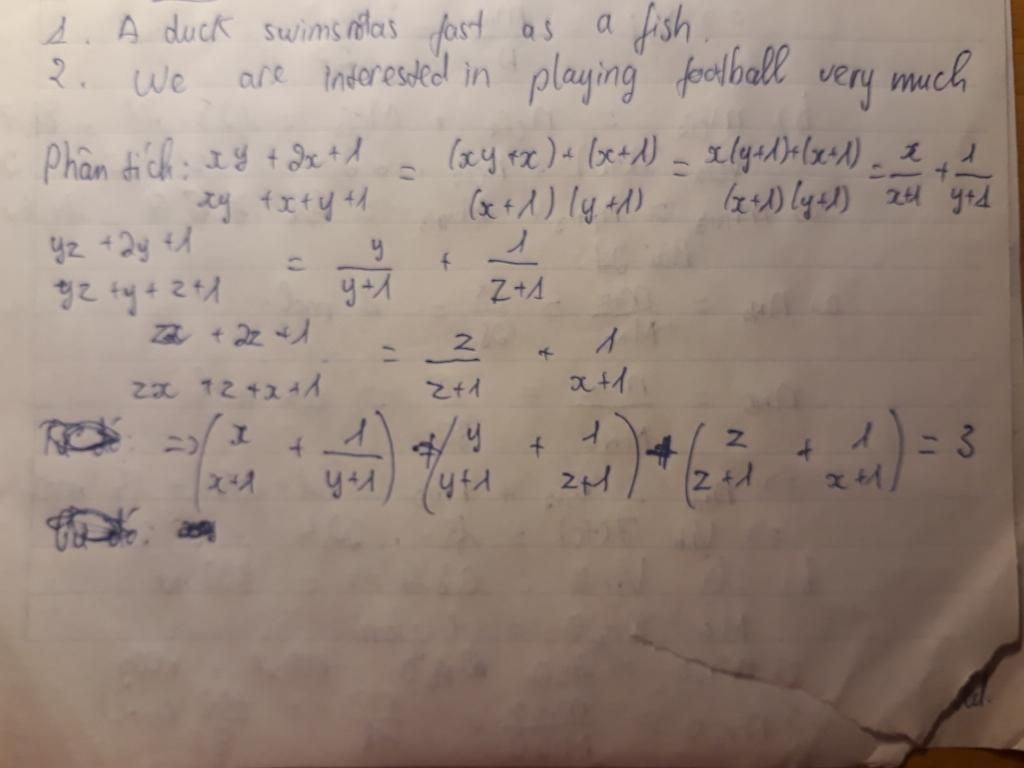 1. A duck swims not as fast as a fish.
2. We are interested in playing football very much
Phân tích: xy + 2x + 1 / xy + x + y + 1 = (xy + x) + (x + 1) / (x + 1)(y + 1) = x(y + 1) + (x + 1) / (x + 1)(y + 1) = x / x + 1 + 1 / y + 1
yz + 2y + 1 / yz + y + z + 1 = y / y + 1 + 1 / z + 1
zx + 2z + 1 / zx + z + x + 1 = z / z + 1 + 1 / x + 1
=> (x / x + 1 + 1 / y + 1) + (y / y + 1 + 1 / z + 1) + (z / z + 1 + 1 / x + 1) = 3